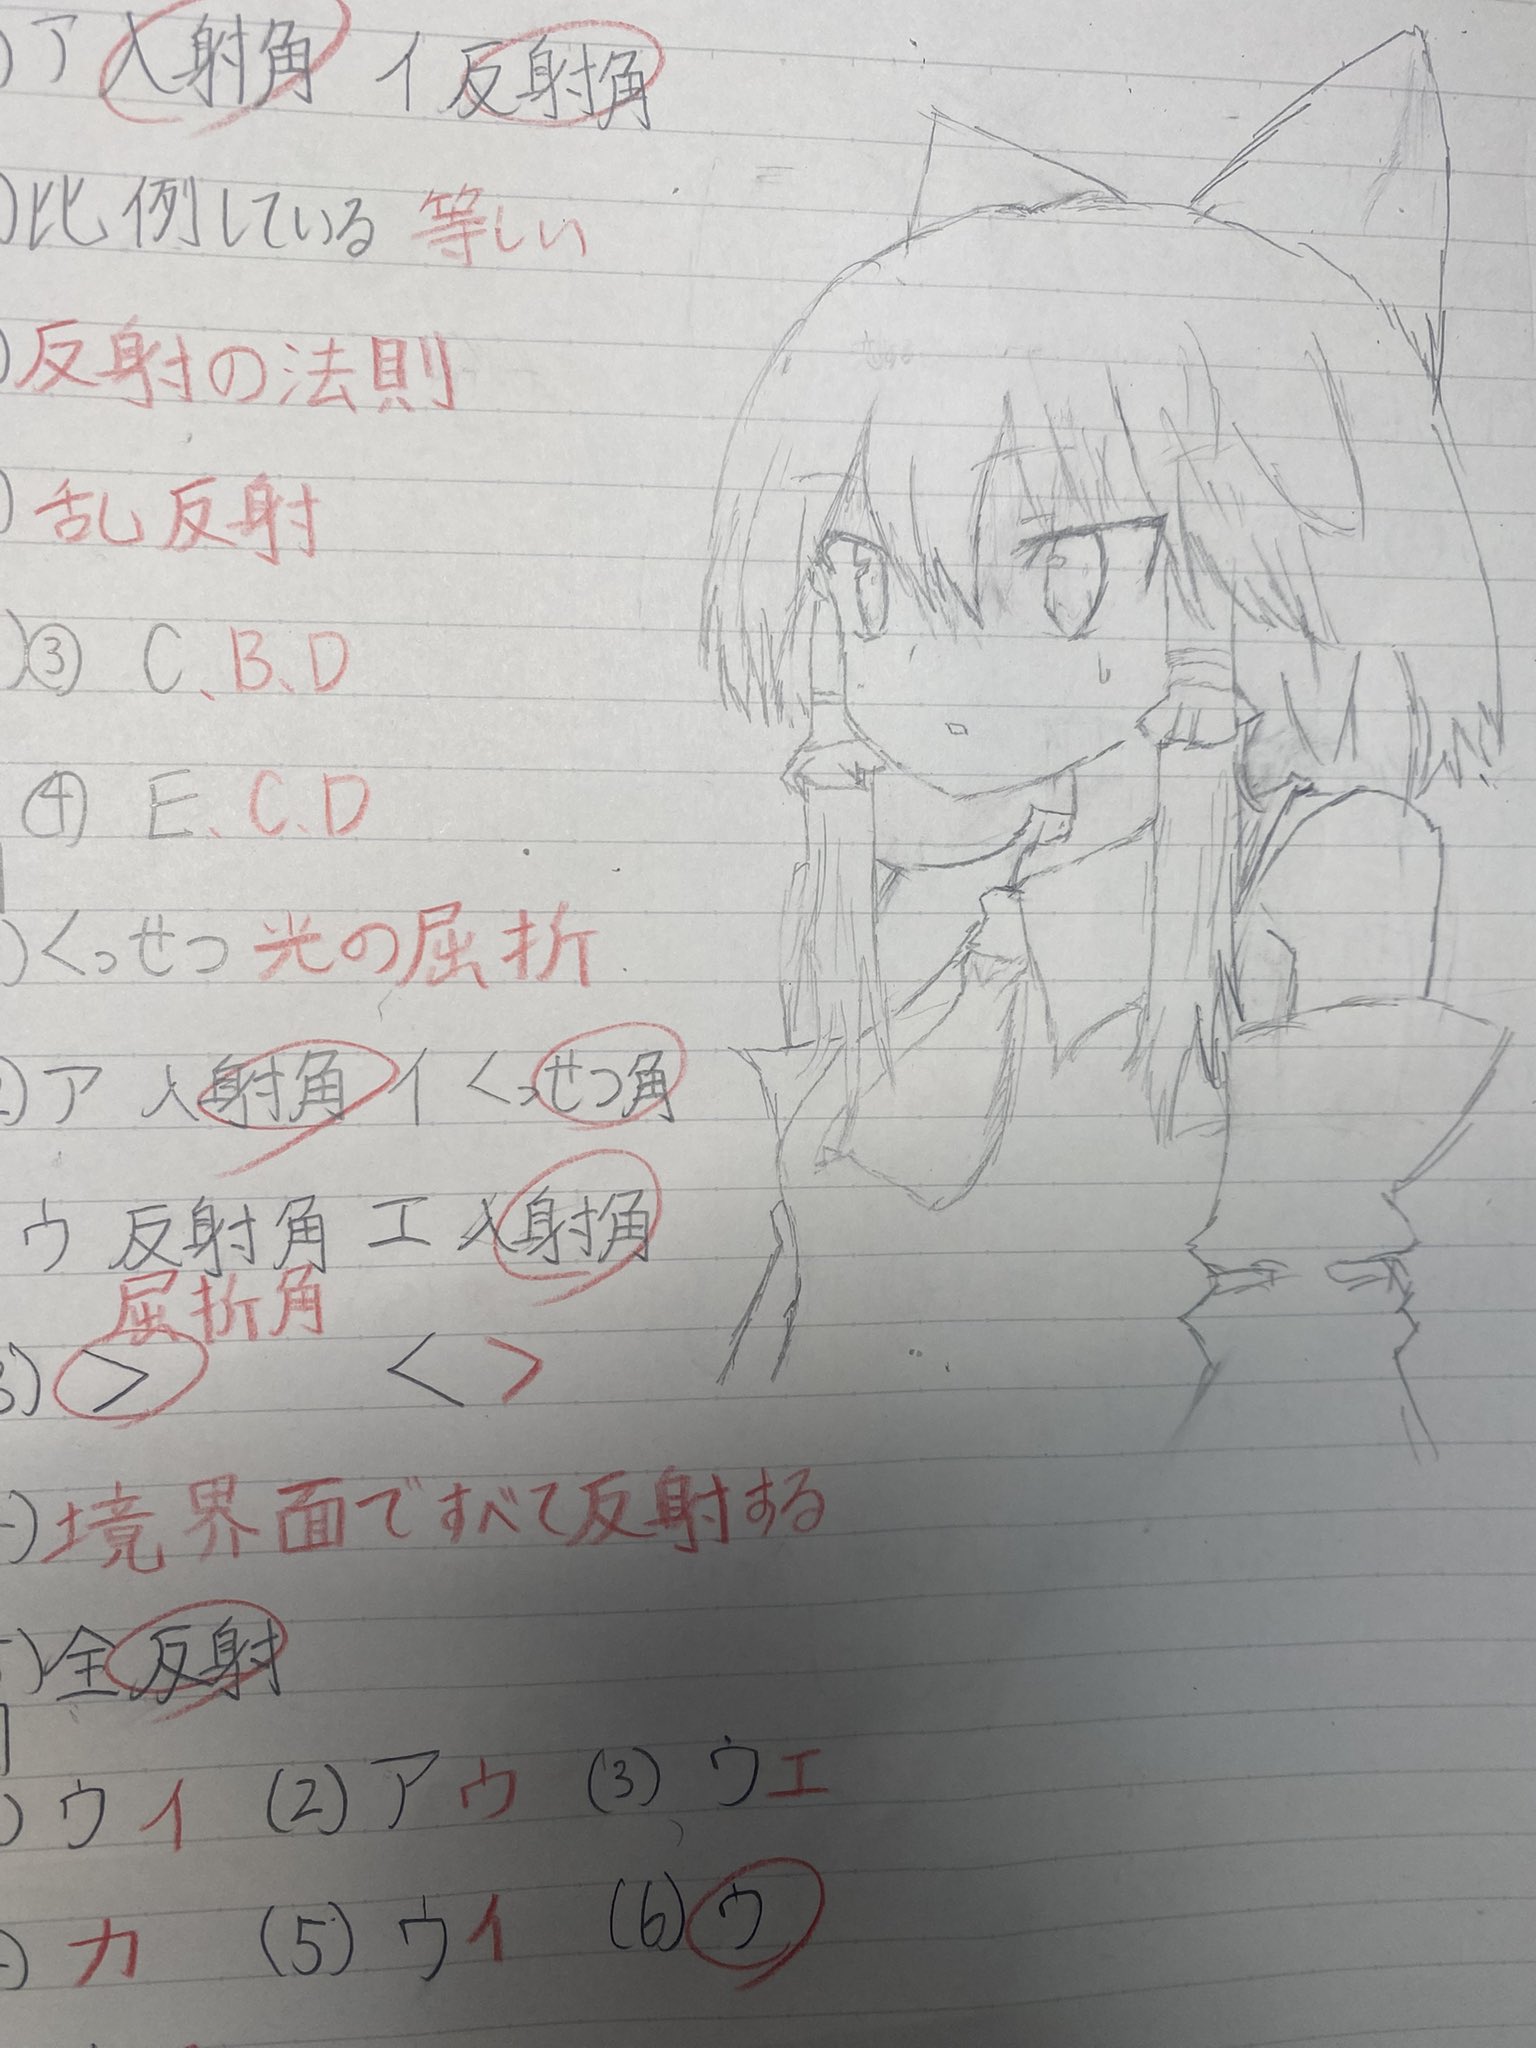 )ア 入射角 イ 反射角
)比例している 等しい
)反射の法則
)乱反射
)③ C、B、D
④ E、C、D
)くっせつ 光の屈折
2)ア 入射角 イ くっせつ角
ウ 反射角 エ 入射角
屈折角
3) > < >
)境界面ですべて反射する
)全反射
)ウイ (2)アウ (3)ウエ
)カ (5)ウイ (6)ウ